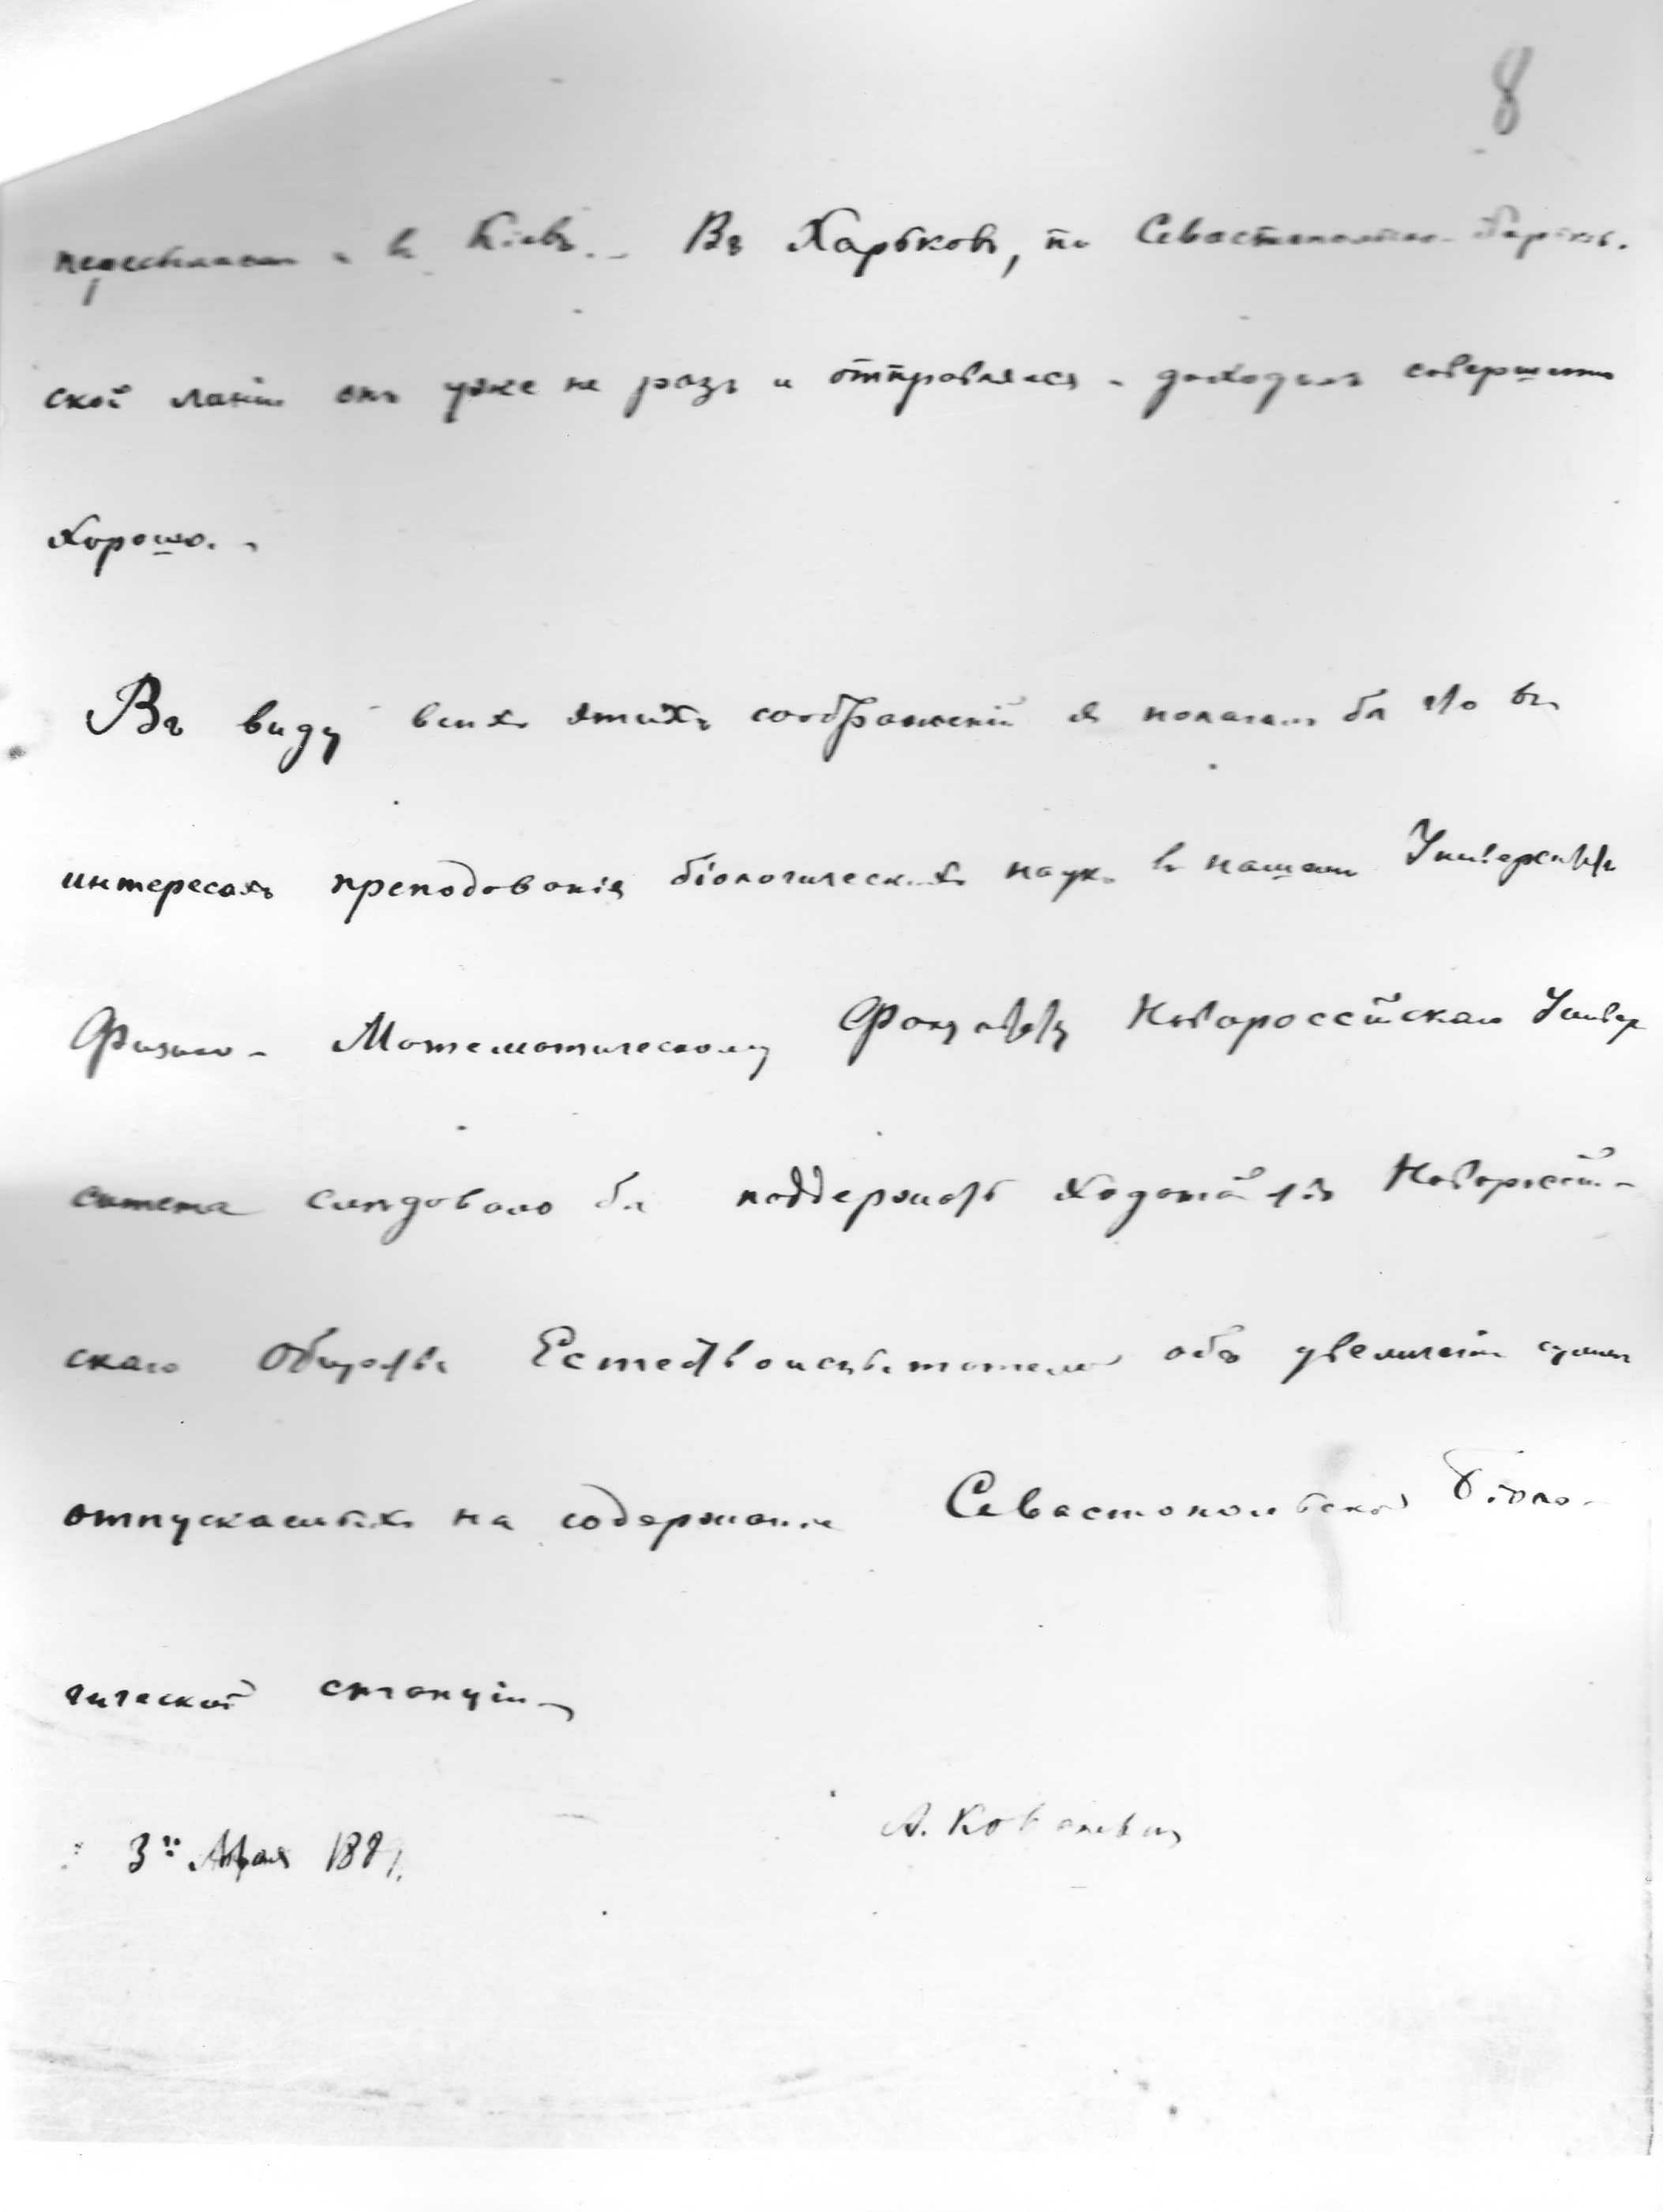 8
пересылать и въ Кіевъ. – Въ Харьковъ, по Севастопольско-Харьков-
ской линіи онъ уже не разъ и отправлялся и доходилъ совершенно
хорошо. –
Въ виду всѣхъ этихъ соображеній я полагалъ бы что въ
интересахъ преподованія біологическихъ наукъ въ нашемъ Университетѣ
Физико-Математическому Факультету Новороссійскаго Универ
ситета слѣдовало бы поддержать ходатайство Новороссій-
скаго Общества Естествоиспытателей объ увеличеніи суммъ
отпускаемыхъ на содержаніе Севастопольской Біоло-
гической станціи –
А. Ковалевскій
3го Апреля 1889.